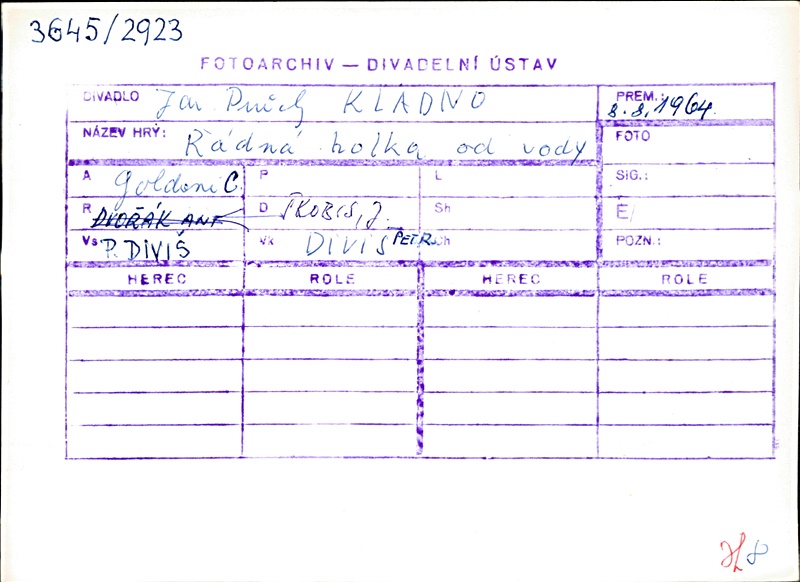 3645/2923
FOTOARCHIV — DIVADELNÍ ÚSTAV
DIVADLO Jar KLADNO PREM.: 8.8.1964
NÁZEV HRY: Řádná holka od vody FOTO
A Goldoni C. P L SIG.:
R DVOŘÁK ANT D ŠKOBIS, J. Sh E/
Vs P. DIVIŠ Vk DIVIŠ PETR Ch POZN.:
HEREC ROLE HEREC ROLE